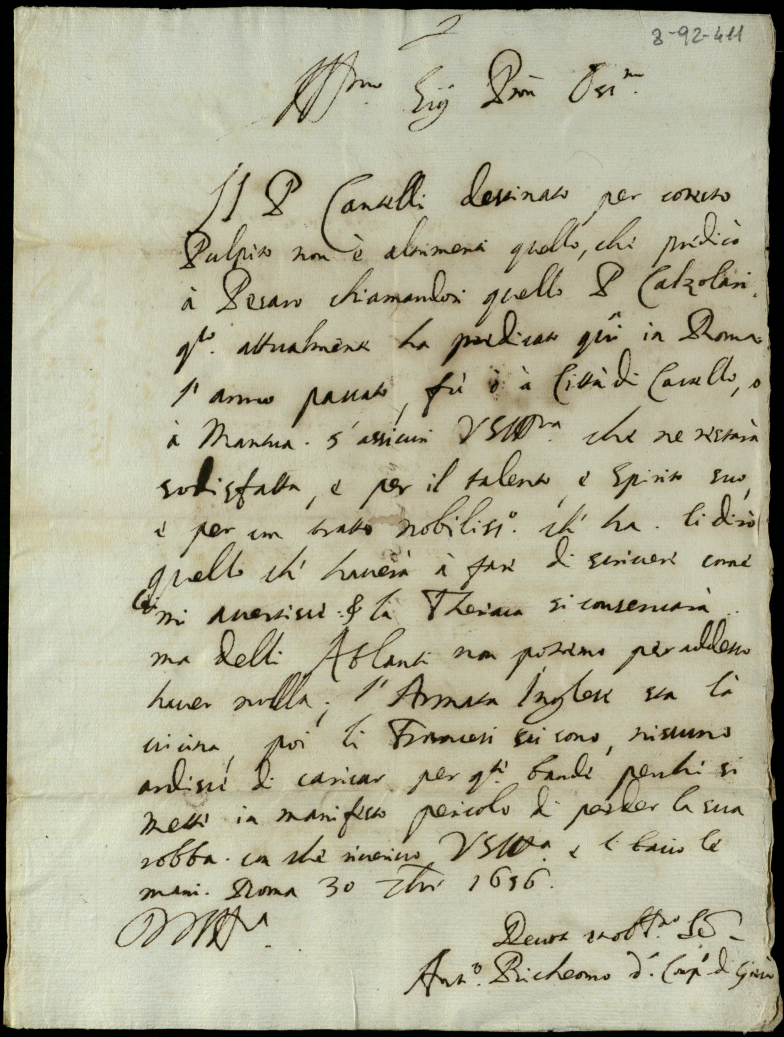 8-92-411
Ill.mo Sig Pron Oss.mo
Il P Cantelli destinato per cotesto
Pulpito non è altrimenti quello, che predicò
à Pesaro chiamandosi quello P Calzolari,
q.to attualmente ha predicato quì in Roma
l'anno passato, fù ò à Città di Castello, o
à Mantua. s'assicuri VSIll.ma che ne restarà
sodisfatta, e per il talento, e spirito suo,
e per un tratto nobiliss.o ch' ha. li dirò
quello ch' haverà à fare di scrivere come
lei mi avertisce. & la Theriaca si conservarà
ma delli Atlanti non potremo per addesso
haver nulla; l'Armata Inglese sta là
vicina, poi li Francesi vi sono, nissuno
ardisce di caricar per q.te bande perche si
mette in manifesto pericolo di perder la sua
robba. con che riverisco VSIll.ma e li bacio le
mani. Roma 30 1656.
DVSIll.ma
Devot.mo et obblig.mo
Ant.o Richeomo d. Comp.a di Giesù